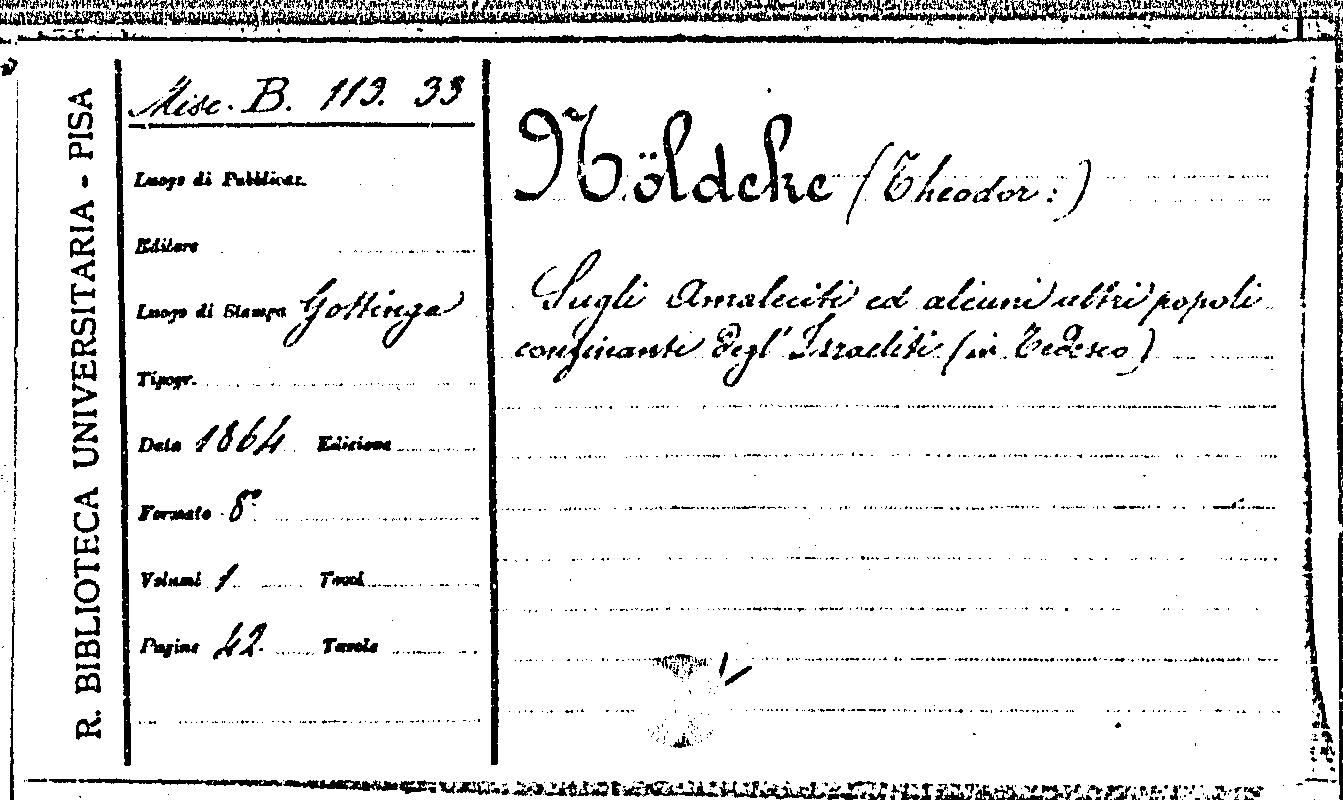 R. BIBLIOTECA UNIVERSITARIA - PISA
Misc. B. 113. 33
Luogo di Pubblicaz.
Editore
Luogo di Stampa Gottinga
Tipogr.
Data 1864 Edizione
Formato 8°
Volumi 1 Tomi
Pagine 42 Tavole
Nöldeke (Theodor:)
Sugli Amaleciti ed alcuni altri popoli
confinanti degl' Israeliti (in Tedesco)